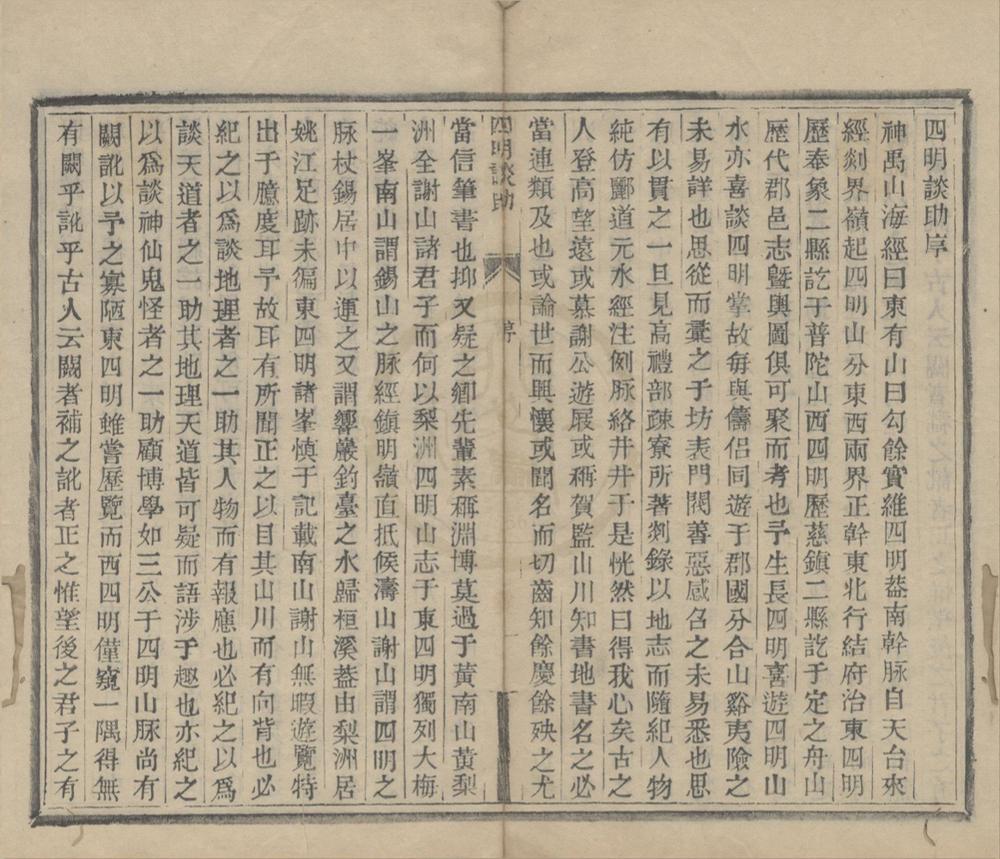 四明談助序
神禹山海經曰東有山曰勾餘實維四明葢南幹脉自天台來
經剡界嶺起四明山分東西兩界正幹東北行結府治東四明
歷奉象二縣訖于普陀山西四明歷慈鎮二縣訖于定之舟山
歷代郡邑志曁輿圖俱可聚而考也予生長四明喜遊四明山
水亦喜談四明掌故每與儔侶同遊于郡國分合山谿夷險之
未易詳也思從而彚之于坊表門閥善惡感召之未易悉也思
有以貫之一旦見高禮部疎寮所著剡錄以地志而隨紀人物
純仿酈道元水經注例脉絡井井于是恍然曰得我心矣古之
人登高望遠或慕謝公遊屐或稱賀監山川知書地書名之必
當連類及也或論世而興懷或聞名而切齒知餘慶餘殃之尤
四明談助
序
一
當信筆書也抑又疑之鄕先輩素稱淵博莫過于黃南山黃梨
洲全謝山諸君子而何以梨洲四明山志于東四明獨列大梅
一峯南山謂錫山之脉經鎮明嶺直抵候濤山謝山謂四明之
脉杖錫居中以運之又謂響巖釣臺之水歸桓溪葢由梨洲居
姚江足跡未徧東四明諸峯愼于記載南山謝山無暇遊覽特
出于臆度耳予故耳有所聞正之以目其山川而有向背也必
紀之以爲談地理者之一助其人物而有報應也必紀之以爲
談天道者之一助其地理天道皆可疑而語涉于趣也亦紀之
以爲談神仙鬼怪者之一助顧博學如三公于四明山脉尚有
闕訛以予之寡陋東四明雖嘗歷覽而西四明僅窺一隅得無
有闕乎訛乎古人云闕者補之訛者正之惟望後之君子之有